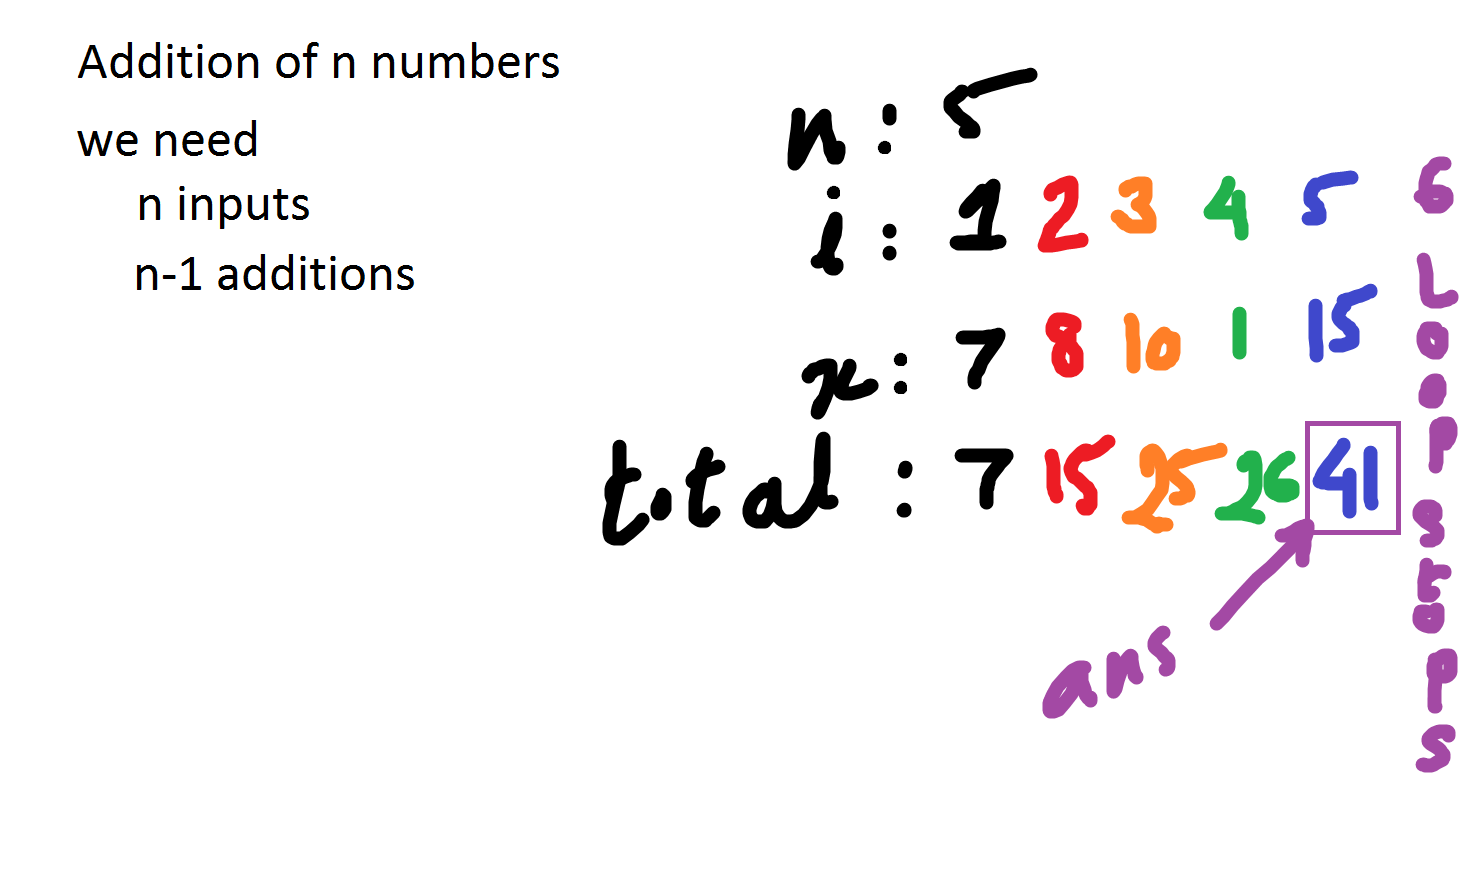 Addition of n numbers
we need
n inputs
n-1 additions
n : 5
i : 1 2 3 4 5 6
x : 7 8 10 1 15
total : 7 15 25 26 41
ans
Loop stops